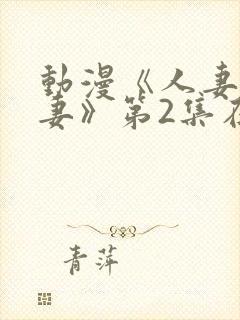 動漫《人妻
妻》第2集在
青萍